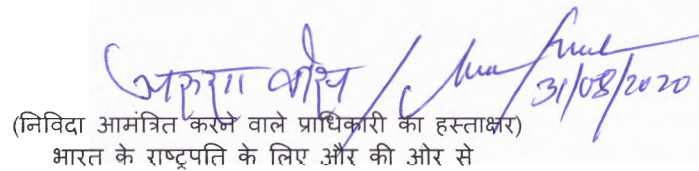 अरुणा 31/08/2020
(निविदा आमंत्रित करने वाले प्राधिकारी का हस्ताक्षर)
भारत के राष्ट्रपति के लिए और की ओर से